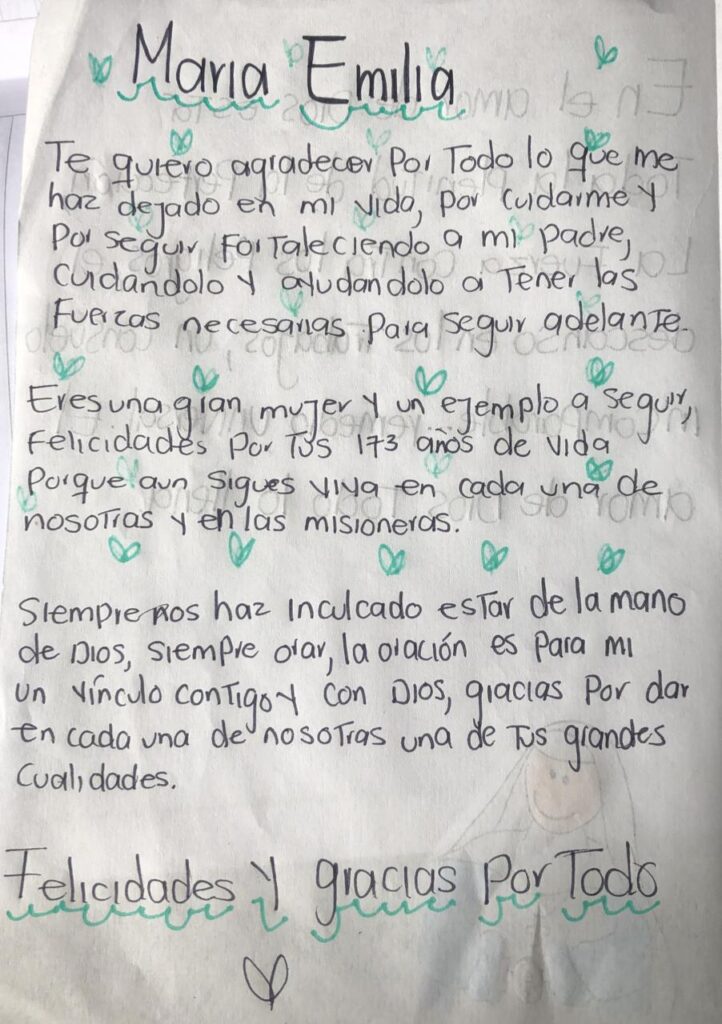 Maria Emilia
Te quiero agradecer Por Todo lo que me
haz dejado en mi vida, por cuidarme y
Por seguir Fortaleciendo a mi padre,
cuidándolo y ayudandolo a Tener las
Fuerzas necesarias Para seguir adelante.
Eres una gran mujer y un ejemplo a seguir,
Felicidades por Tus 173 años de vida
Porque aun sigues viva en cada una de
nosotras y en las misioneras.
Siempre nos haz inculcado estar de la mano
de Dios, siempre orar, la oración es para mi
un vínculo contigo y con Dios, gracias por dar
en cada una de nosotras una de Tus grandes
Cualidades.
Felicidades y gracias Por Todo